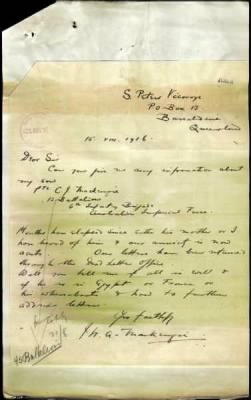 S. Peters Vicarage
PO Box 15
Barcaldine
Queensland
15 1916
Dear Sir
Can you give me any information about
my son
Pte C J Mackenzie
Battalion
Infantry Brigade
Australian Imperial Force.
Months have elapsed since either his mother or I
have heard of him & our anxiety is now
acute. Our letters have been returned
through the Dead Letter Office
Will you tell me if all is well &
if he is in Egypt or France or
his whereabouts & how to further
address letters.
Yrs faithfly
A. Mackenzie
Battalion